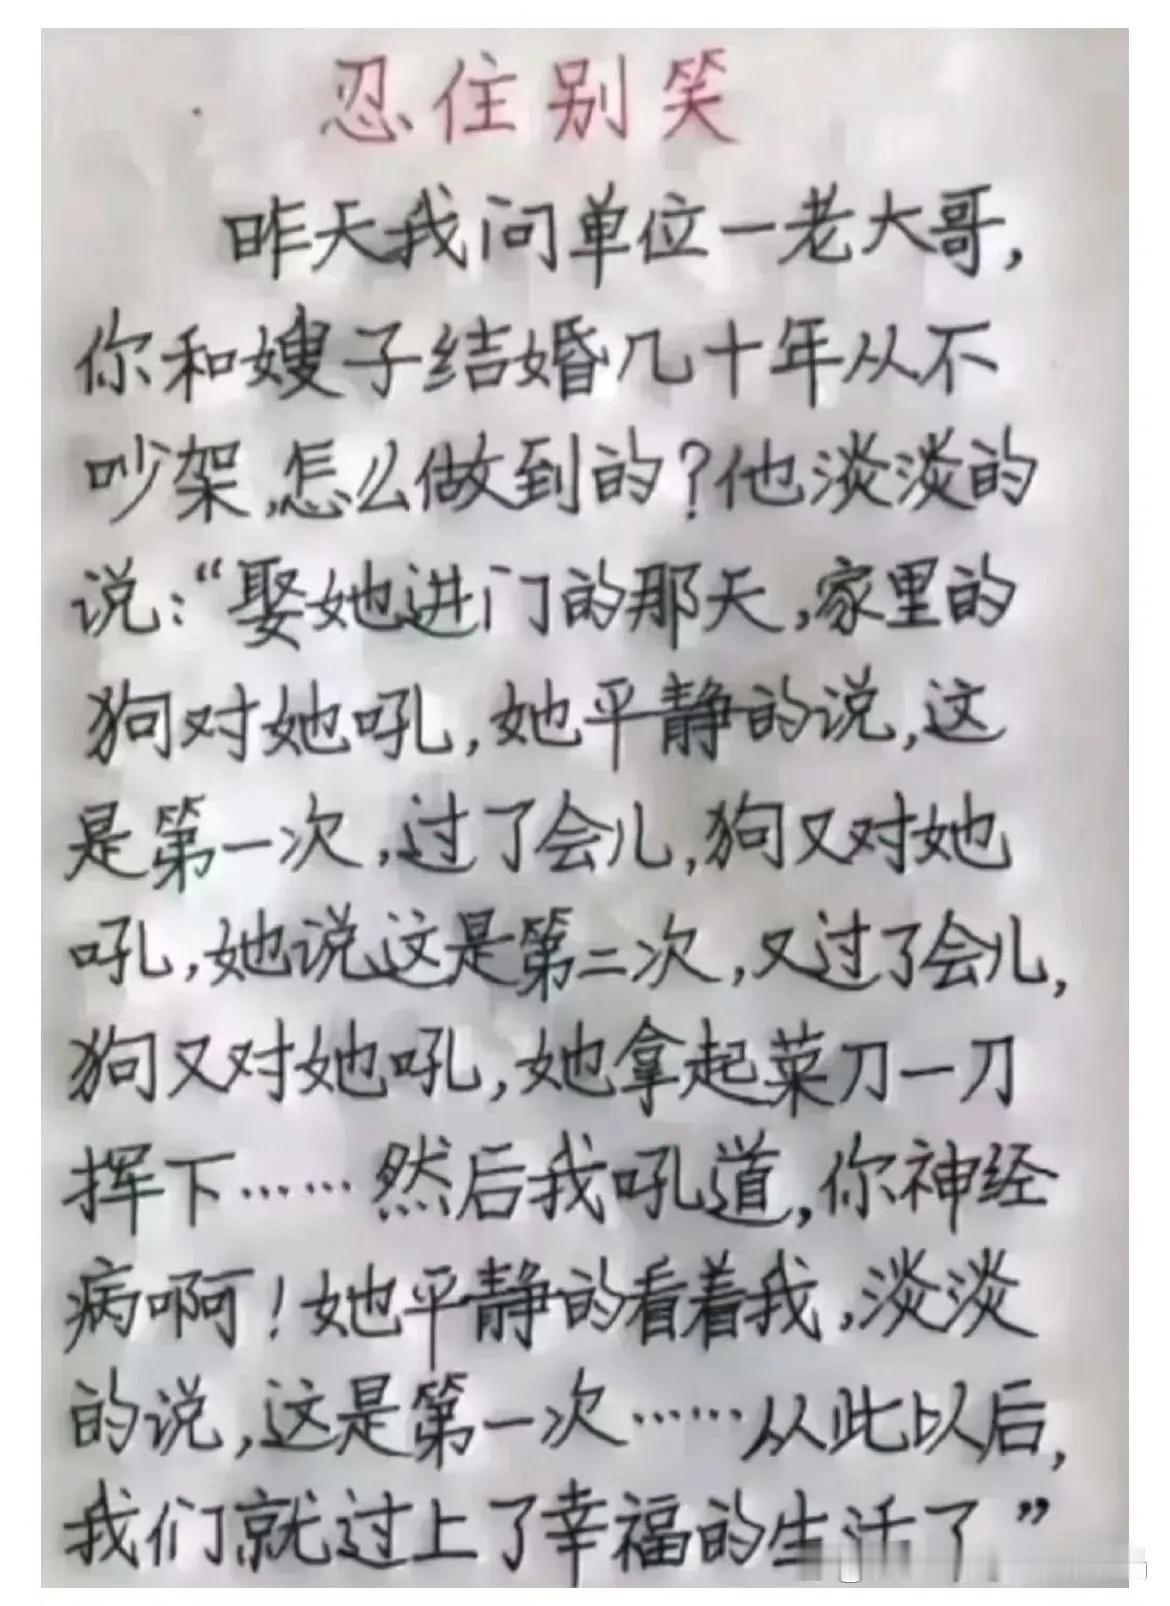 忍住别笑
昨天我问单位一老大哥，
你和嫂子结婚几十年从不
吵架，怎么做到的？他淡淡的
说：“娶她进门的那天，家里的
狗对她吼，她平静的说，这
是第一次，过了会儿，狗又对她
吼，她说这是第二次，又过了会儿，
狗又对她吼，她拿起菜刀一刀
挥下……然后我吼道，你神经
病啊！她平静的看着我，淡淡
的说，这是第一次……从此以后，
我们就过上了幸福的生活了”